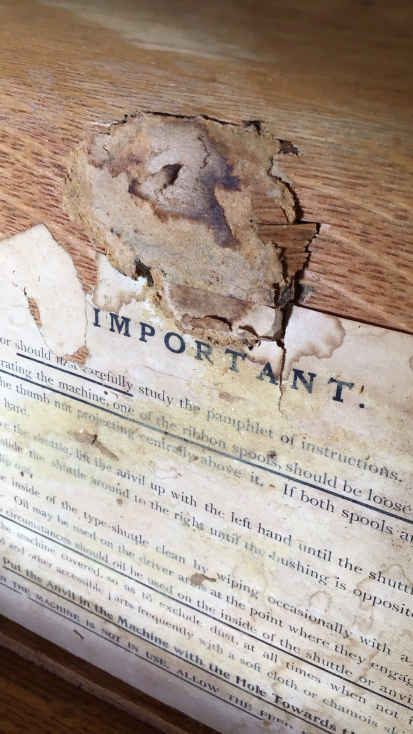 IMPORTANT.
or should not carefully study the pamphlet of instructions.
rating the machine, one of the ribbon spools, should be loose
he thumb nut projecting centrally above it. If both spools a
hand.
the shuttle, lift the anvil up with the left hand until the shutt
slide the shuttle around to the right until the bushing is opposi
e inside of the type-shuttle clean by wiping occasionally with a
Oil may be used on the driver arms at the point where they engag
circumstances should oil be used on the inside of the shuttle or anvi
he machine covered, so as to exclude dust, at all times when not
and other accessible parts frequently with a soft cloth or chamois sk
Put the Anvil in the Machine with the Hole Towards
THE MACHINE IS NOT IN USE, ALLOW THE